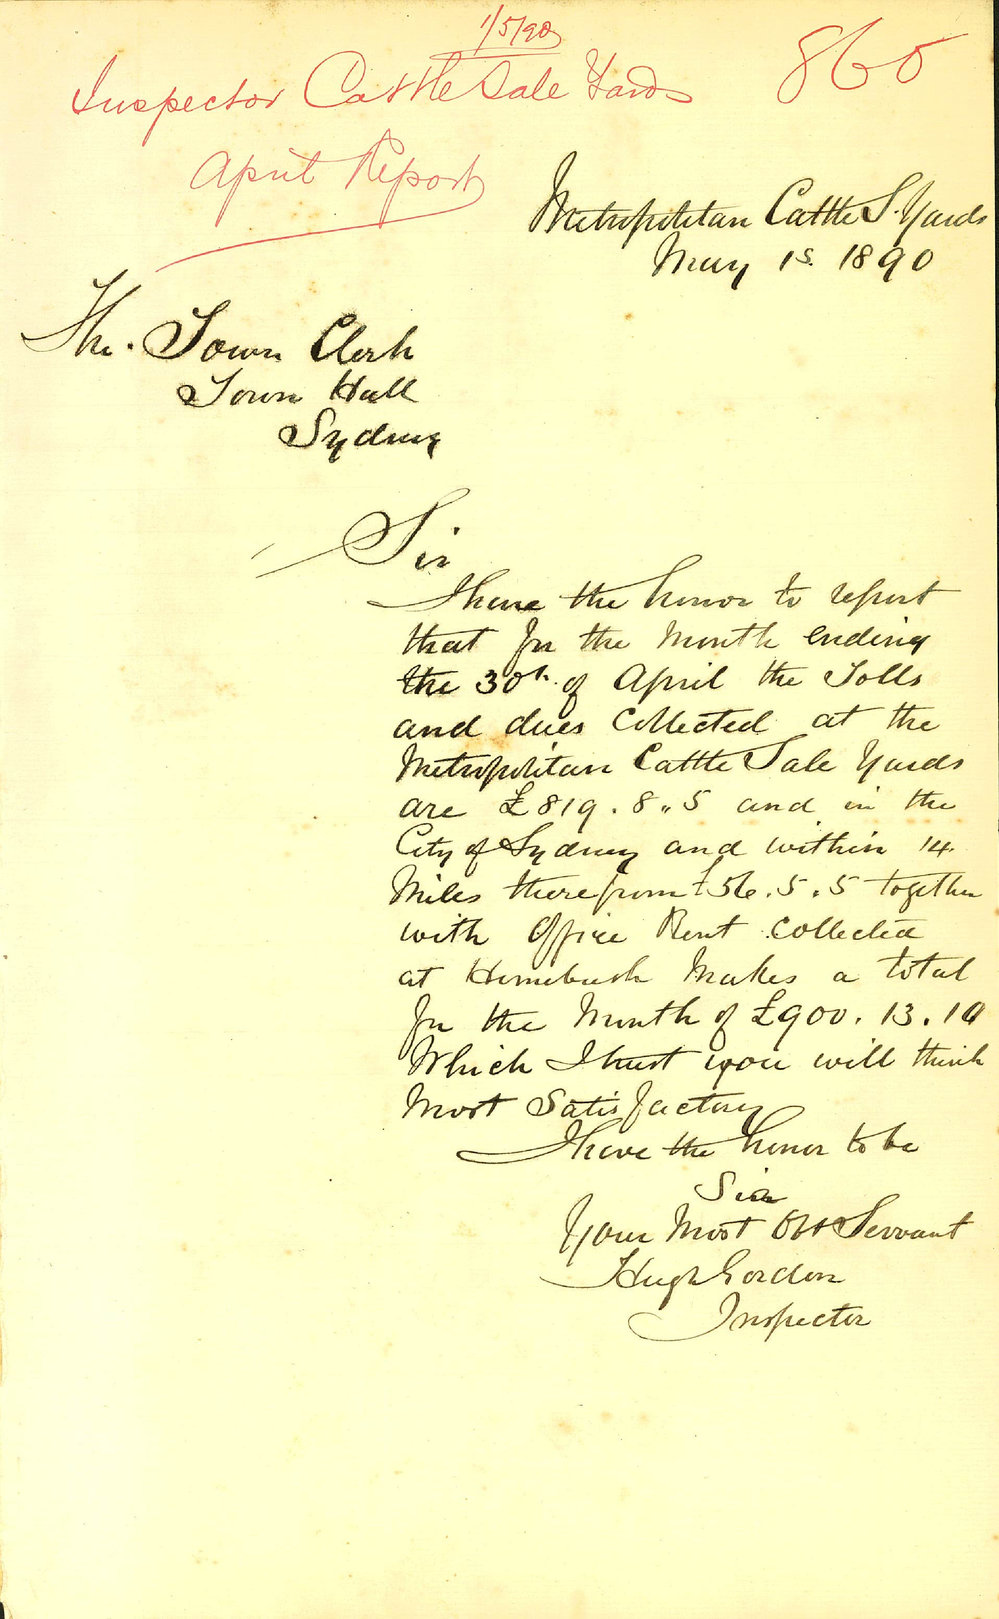 1/5/90
Inspector Cattle Sale Yards 860
April Report
Metropolitan Cattle S. Yards
May 1s. 1890
The. Town Clerk
Town Hall
Sydney
Sir
I have the honor to report
that for the Month ending
the 30th. of April the Tolls
and dues Collected at the
Metropolitan Cattle Sale Yards
are £819.8.,5 and in the
City of Sydney and within 14
Miles therefrom £56.5.5 together
with Office Rent Collected
at Homebush Makes a total
for the Month of £900.13.10
Which I trust you will think
Most Satisfactory
I have the honor to be
Sir
Your Most Obt Servant
Hugh Gordon
Inspector